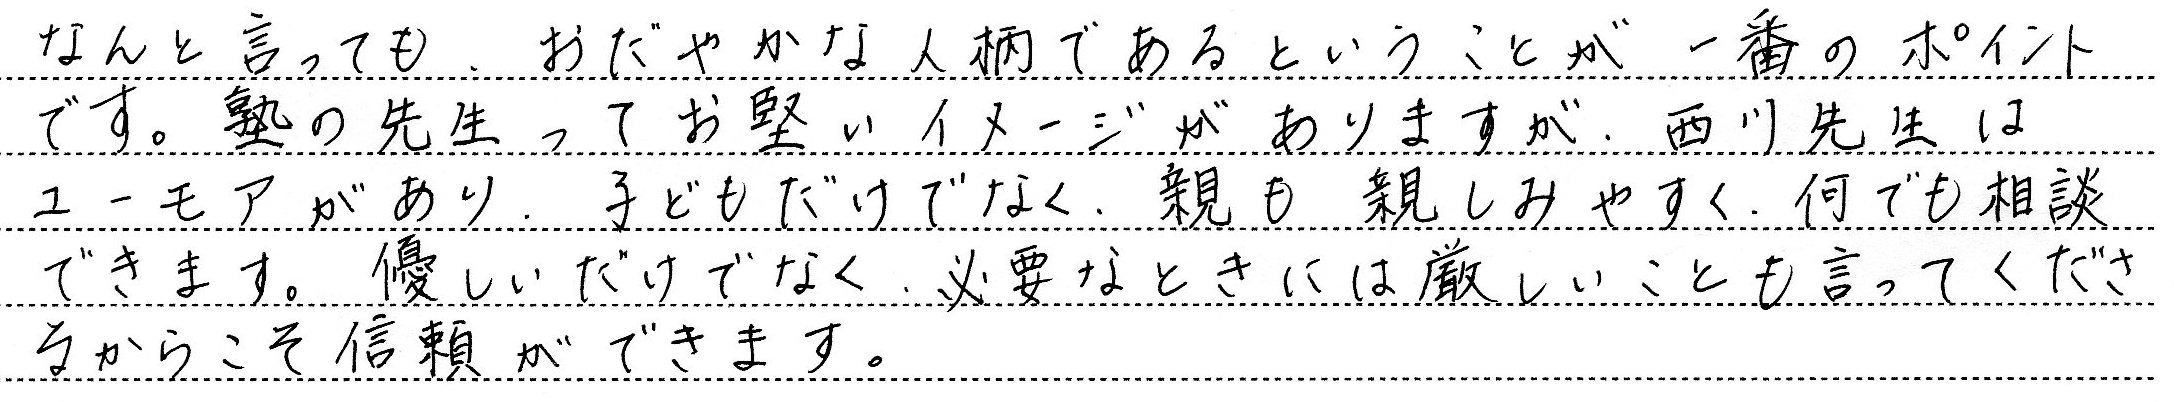 なんと言っても、おだやかな人柄であるということが一番のポイント
です。塾の先生ってお堅いイメージがありますが、西川先生は
ユーモアがあり、子どもだけでなく、親も親しみやすく、何でも相談
できます。優しいだけでなく、必要なときには厳しいことも言ってくださ
るからこそ信頼ができます。